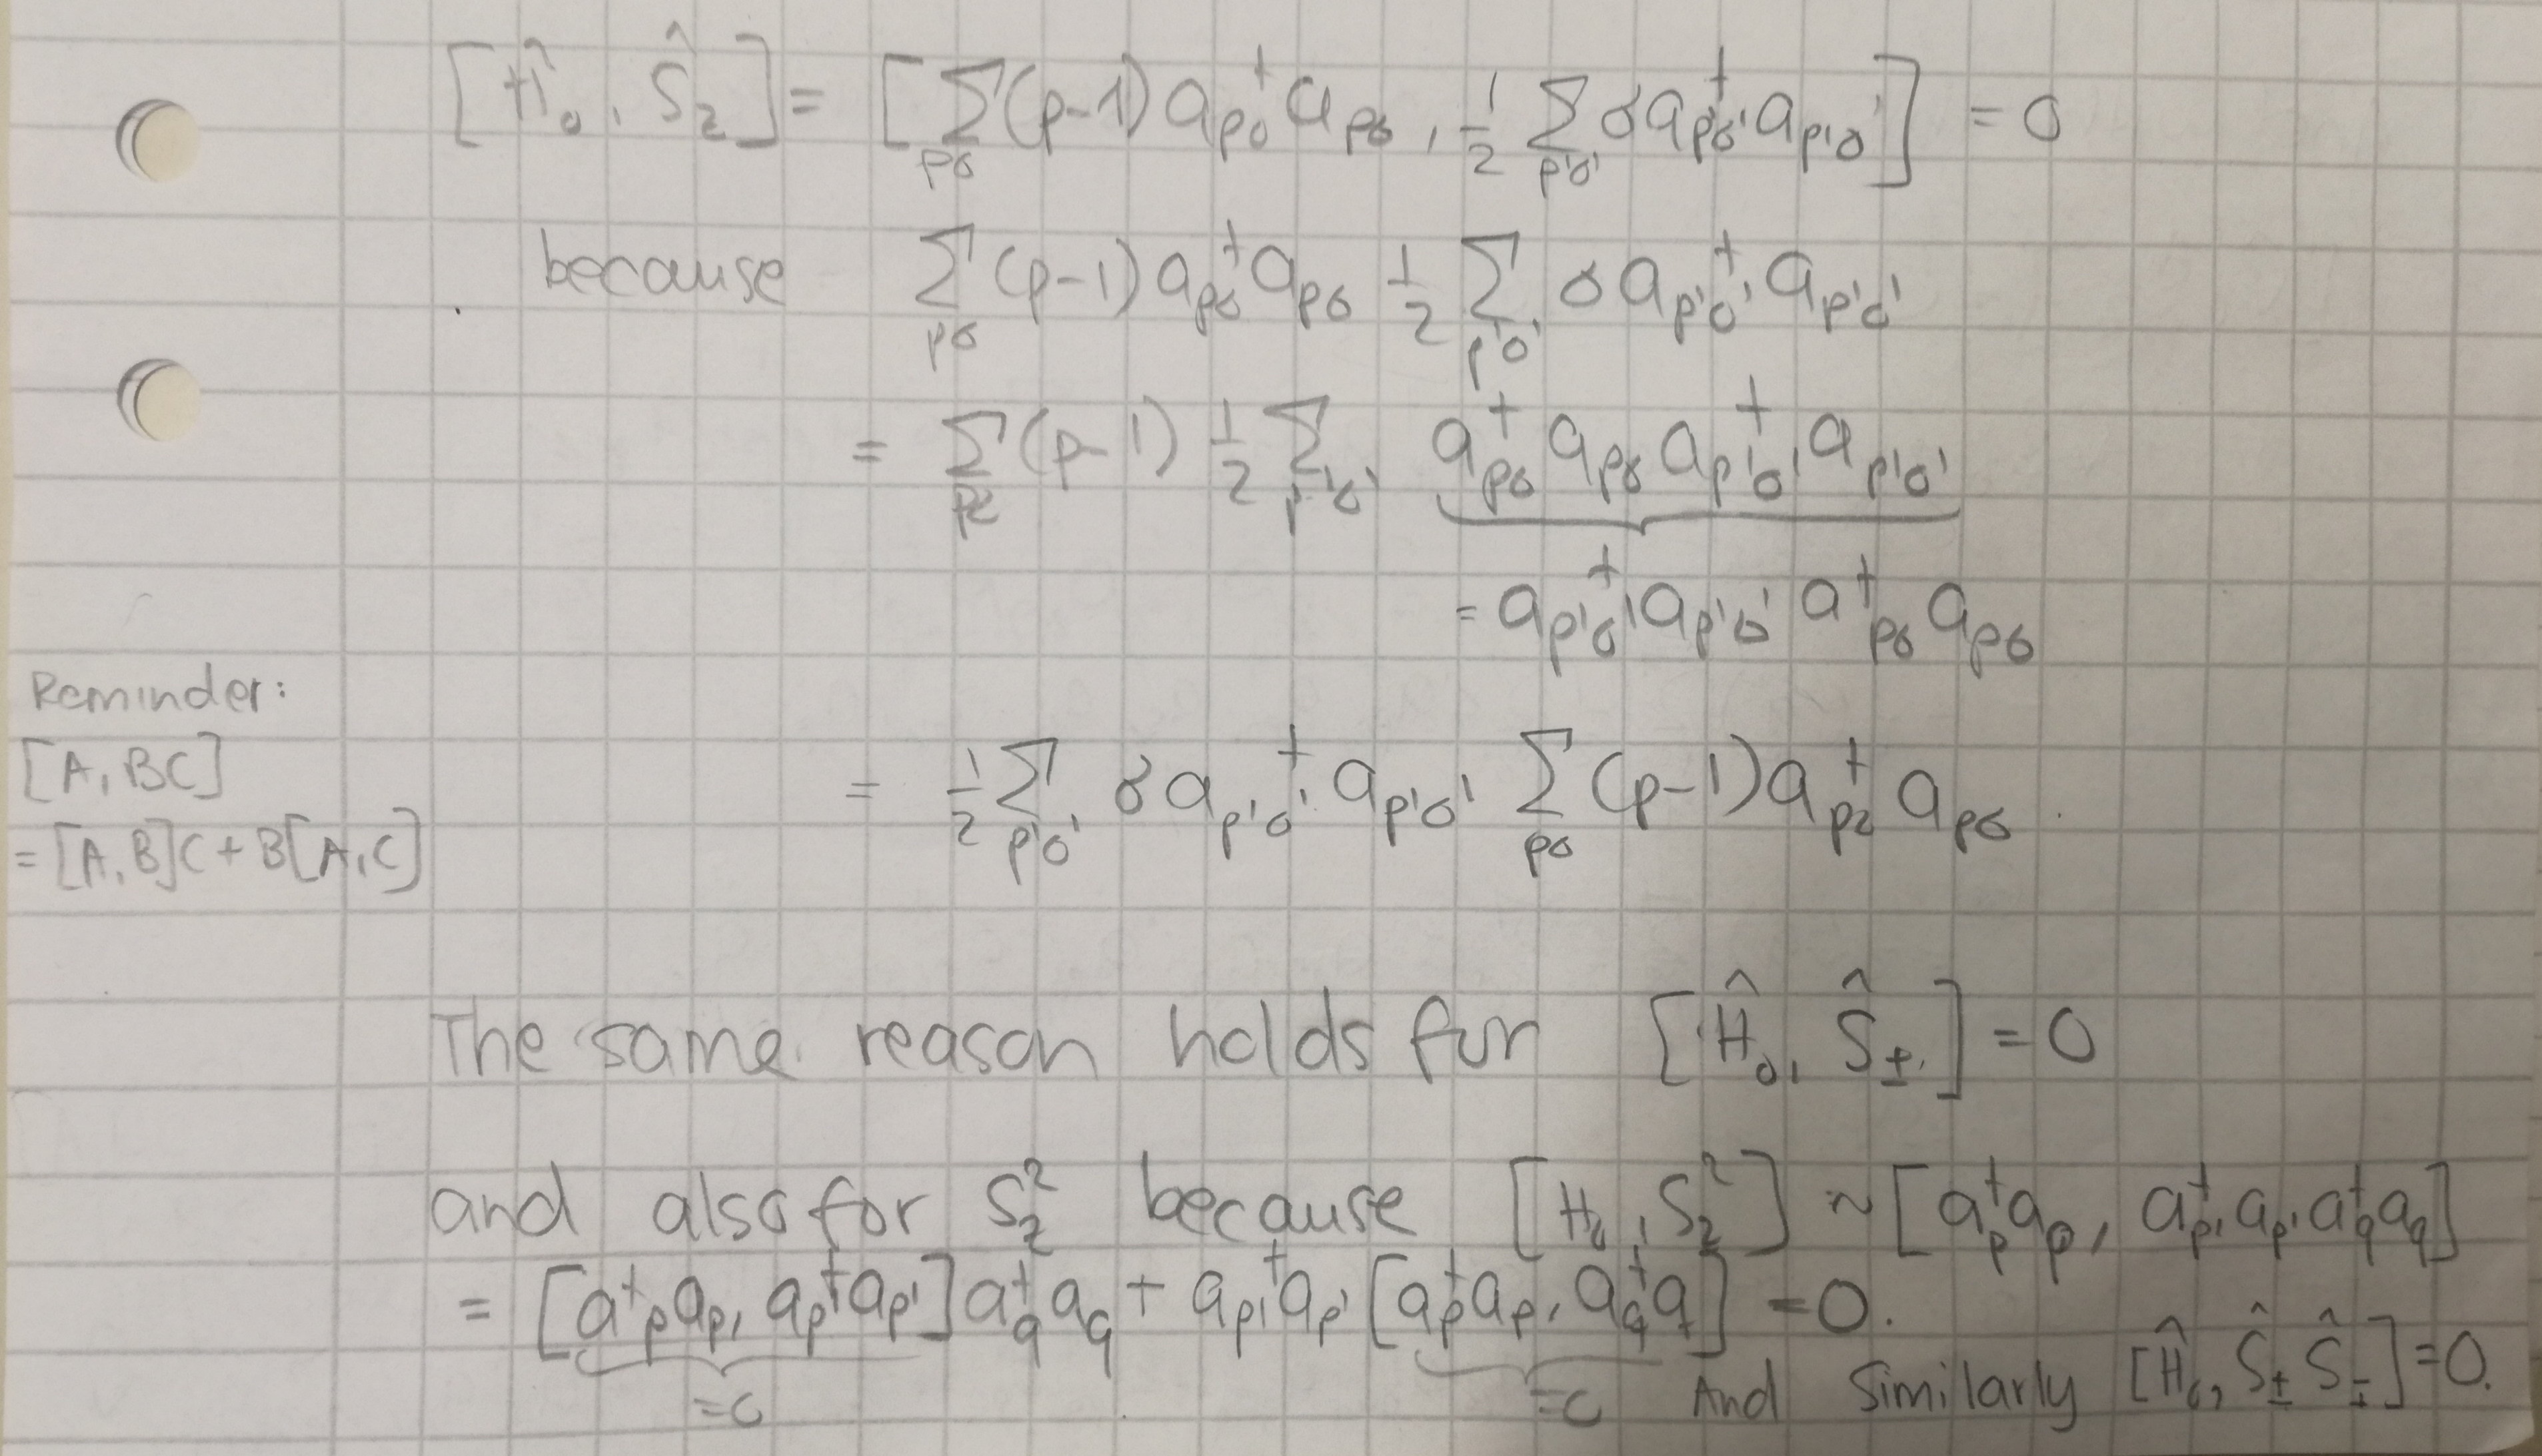 [Ĥ₀, Ŝ_z] = [∑_{pσ} (p-1) a_{pσ}^† a_{pσ}, 1/2 ∑_{p'σ'} σ a_{p'σ'}^† a_{p'σ'}] = 0
because ∑_{pσ} (p-1) a_{pσ}^† a_{pσ} 1/2 ∑_{p'σ'} σ a_{p'σ'}^† a_{p'σ'}
= ∑ (p-1) 1/2 ∑_{p'σ'} a_{pσ}^† a_{pσ} a_{p'σ'}^† a_{p'σ'}
= a_{p'σ'}^† a_{p'σ'} a^†_{pσ} a_{pσ}
Reminder:
[A, BC]
= [A, B]C + B[A, C]
= 1/2 ∑_{p'σ'} σ a_{p'σ'}^† a_{p'σ'} ∑_{pσ} (p-1) a^†_{pσ} a_{pσ}.
The same reason holds for [Ĥ₀, Ŝ_±] = 0
and also for S_z² because [H₀, S_z²] ~ [a_p^† a_p, a_{p'}^† a_{p'} a_q^† a_q]
= [a^†_p a_p, a_{p'}^† a_{p'}] a_q^† a_q + a_{p'}^† a_{p'} [a_p^† a_p, a_q^† a_q] = 0.
=0 =0 And Similarly [Ĥ₀, Ŝ_± Ŝ_∓] = 0.